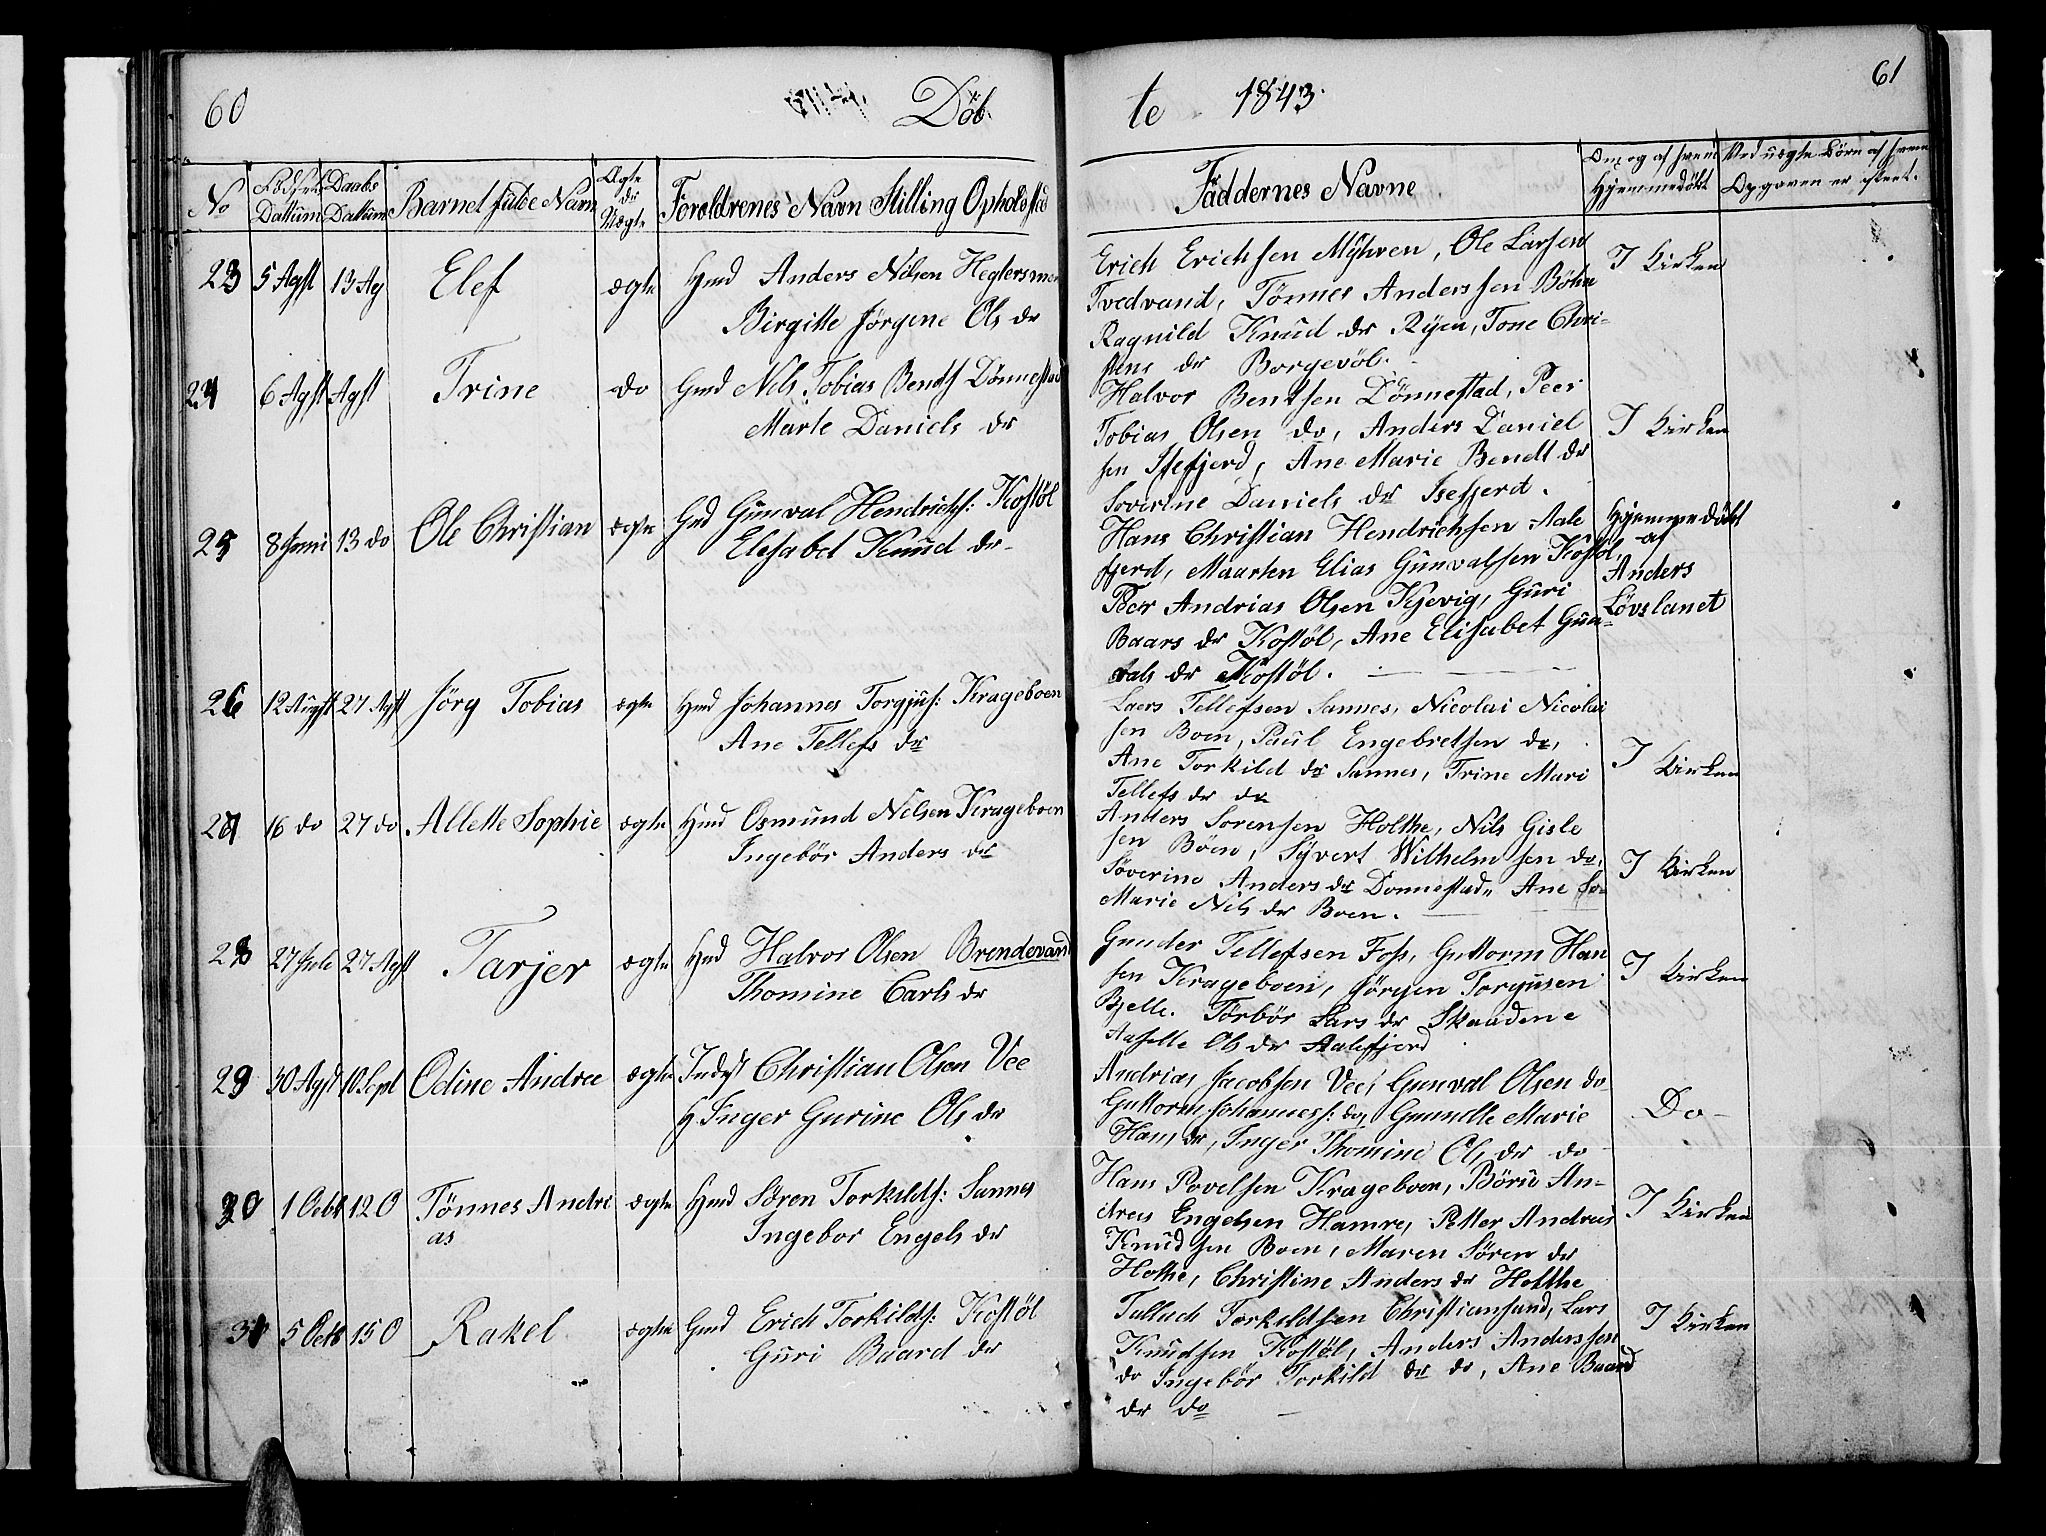 60
Döb
te 1843.
61
No
Födsels Dattum
Daabs Dattum
Barnet fulde Navn
Ægte eller Uægte
Foreldrenes Navn Stilling Opholdsted
Faddernes Navne
Om og af hvem Hjemmedöbt
Ved uægte Börn af hvem Opgaven er skeet.
23 5 Agst 13 Ag Elef ægte Hmd Anders Nilsen Heglersmoe
Birgitte Jörgine Ols dr
Erich Erichsen Mÿhren, Ole Larsen
Tvedvand, Tönnes Anderssen Böhn
Ragnild Knud dr Ryen, Tone Chri-
stens dr Borgevöl.
I Kirken
24 6 Agst Agst Trine do Gmd Nils Tobias Bendts Dönnestad
Marte Daniels dr
Halvor Bentsen Dönnestad, Peer
Tobias Olsen do, Anders Daniel
sen Isefjerd, Ane Marie Bendt dr
Soverine Daniels dr Isefjerd.
I Kirken
25 8 Juni 13 do Ole Christian ægte Gmd Gunval Hendrichs: Kostöl
Elesabet Knud dr
Hans Christian Hendrichsen Aale
fjerd, Maarten Elias Gunvalsen Kostöl,
Peer Andrias Olsen Kjevig, Guri
Baars dr Kostöl, Ane Elisabet Gun-
vals dr Kostöl.
Hjemmedöbt
af
Anders
Lövslanet
26 12 Augst 27 Agst Jörg Tobias ægte Hmd Johannes Torgjus: Krageboen
Ane Tellefs dr
Laers Tellefsen Sannes, Nicolai Nicolai
sen Boen, Paul Engebretsen do,
Ane Torkild dr Sannes, Trine Mari
Tellefs dr do
I Kirken
27 16 do 27 do Allette Sophie ægte Hmd Osmund Nilsen Krageboen
Ingebör Anders dr
Anders Sorensen Holthe, Nils Gisle
sen Böen, Syvert Wilhelm sen do,
Söverine Anders dr Donnestad, Ane So-
Marie Nils dr Boen.
I Kirken
28 27 Jule 27 Agst Tarjer ægte Hmd Halvor Olsen Brendevand
Thomine Carls dr
Gunder Tellefsen Foss, Guttorm Han
sen Krageboen, Jörgen Torgusen
Bjelle. Törbör Lars dr Skaadene
Ols dr Aalefjerd
I Kirken
29 30 Agst 10 Sept Odine Andrea ægte Indst Christian Olsen Vee
H Inger Gurine Ols dr
Andrias Jacobsen Vee, Gunval Olsen do
Guttorm Johanness: do, Gunnelle Marie
Hans dr, Inger Thomine Ols dr do
Do
30 1 Octb 12 O Tönnes Andri
as ægte Hmd Sören Torkilds: Sannes
Ingebor Engels dr
Hans Povelsen Krageboen, Böru An-
dreas Engelsen Hamre, Petter Andreas
Knudsen Boen, Maren Sören dr
Hothe, Christine Anders dr Holthe
I Kirken
31 5 Octb 15 O Rakel ægte Gmd Erich Torkilds: Kostöl
Guri Baard dr
Tallach Torkildsen Christiansand, Lars
Knudsen Kostöl, Anders Anderssen
do Ingebör Torkild dr do, Ane Baard
dr do
I Kirken